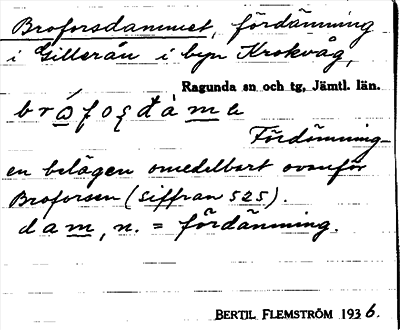 Broforsdammet, fördämning
i Gillerån i byn Krokvåg,
Ragunda sn och tg, Jämtl. län.
Fördämning-
en belägen omedelbart ovanför
Broforsen (siffran 525).
dam, n. = fördämning.
BERTIL FLEMSTRÖM 1936.